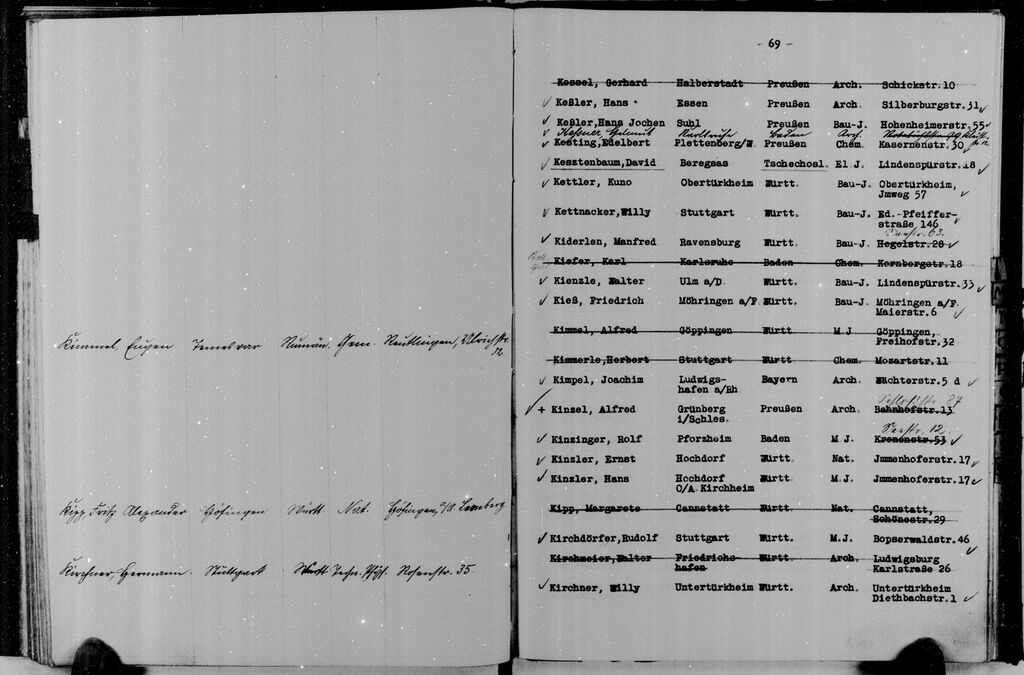 Kimmel, Eugen Temesvar Rumän. Gem. Reutlingen, Ulrichstr.
32
Kipp, Fritz Alexander Höfingen Württ Nat. Höfingen, O/A. Leonberg
Kirchner, Hermann. Stuttgart Württ Techn. Phys. Rosenstr. 35.
- 69 -
Kessel, Gerhard Halberstadt Preußen Arch. Schickstr.10
Keßler, Hans Essen Preußen Arch. Silberburgstr.31
Keßler,Hans Jochen Suhl Preußen Bau-J. Hohenheimerstr.55
Kessner Helmut Karlsruhe Baden Arch.
Kesting,Edelbert Plettenberg/W. Preußen Chem. Kasernenstr.30
Kesztenbaum,David Beregsas Tschechosl. El J. Lindenspürstr.18
Kettler, Kuno Obertürkheim Württ. Bau-J. Obertürkheim,
Jmweg 57
Kettnacker,Willy Stuttgart Württ. Bau-J. Ed.-Pfeiffer-
straße 146
Seestr. 63.
Kiderlen, Manfred Ravensburg Württ. Bau-J. Hegelstr.28
Kiefer, Karl Karlsruhe Baden Chem. Kornbergstr.18
Kienzle, Walter Ulm a/D. Württ. Bau-J. Lindenspürstr.33
Kieß, Friedrich Möhringen a/F. Württ. Bau-J. Möhringen a/F.
Maierstr.6
Kimmel, Alfred Göppingen Württ M.J Göppingen,
Freihofstr.32
Kimmerle,Herbert Stuttgart Württ Chem. Mozartstr.11
Kimpel, Joachim Ludwigs- Bayern Arch. Wächterstr.5 d
hafen a/Rh
Schloßstr. 87
+ Kinzel, Alfred Grünberg Preußen Arch. Bahnhofstr.13
i/Schles.
Seestr. 12.
Kinzinger, Rolf Pforzheim Baden M.J. Kronenstr.53
Kinzler, Ernst Hochdorf Württ. Nat. Jmmenhoferstr.17
Kinzler, Hans Hochdorf Württ. M.J. Jmmenhoferstr.17
O/A.Kirchheim
Kipp, Margarete Cannstatt Württ. Nat. Cannstatt,
Schönestr.29
Kirchdörfer,Rudolf Stuttgart Württ. M.J. Bopserwaldstr.46
Kirchmeier,Walter Friedrichs- Württ. Arch. Ludwigsburg
hafen Karlstraße 26
Kirchner, Willy Untertürkheim Württ. Arch. Untertürkheim
Diethbachstr.1